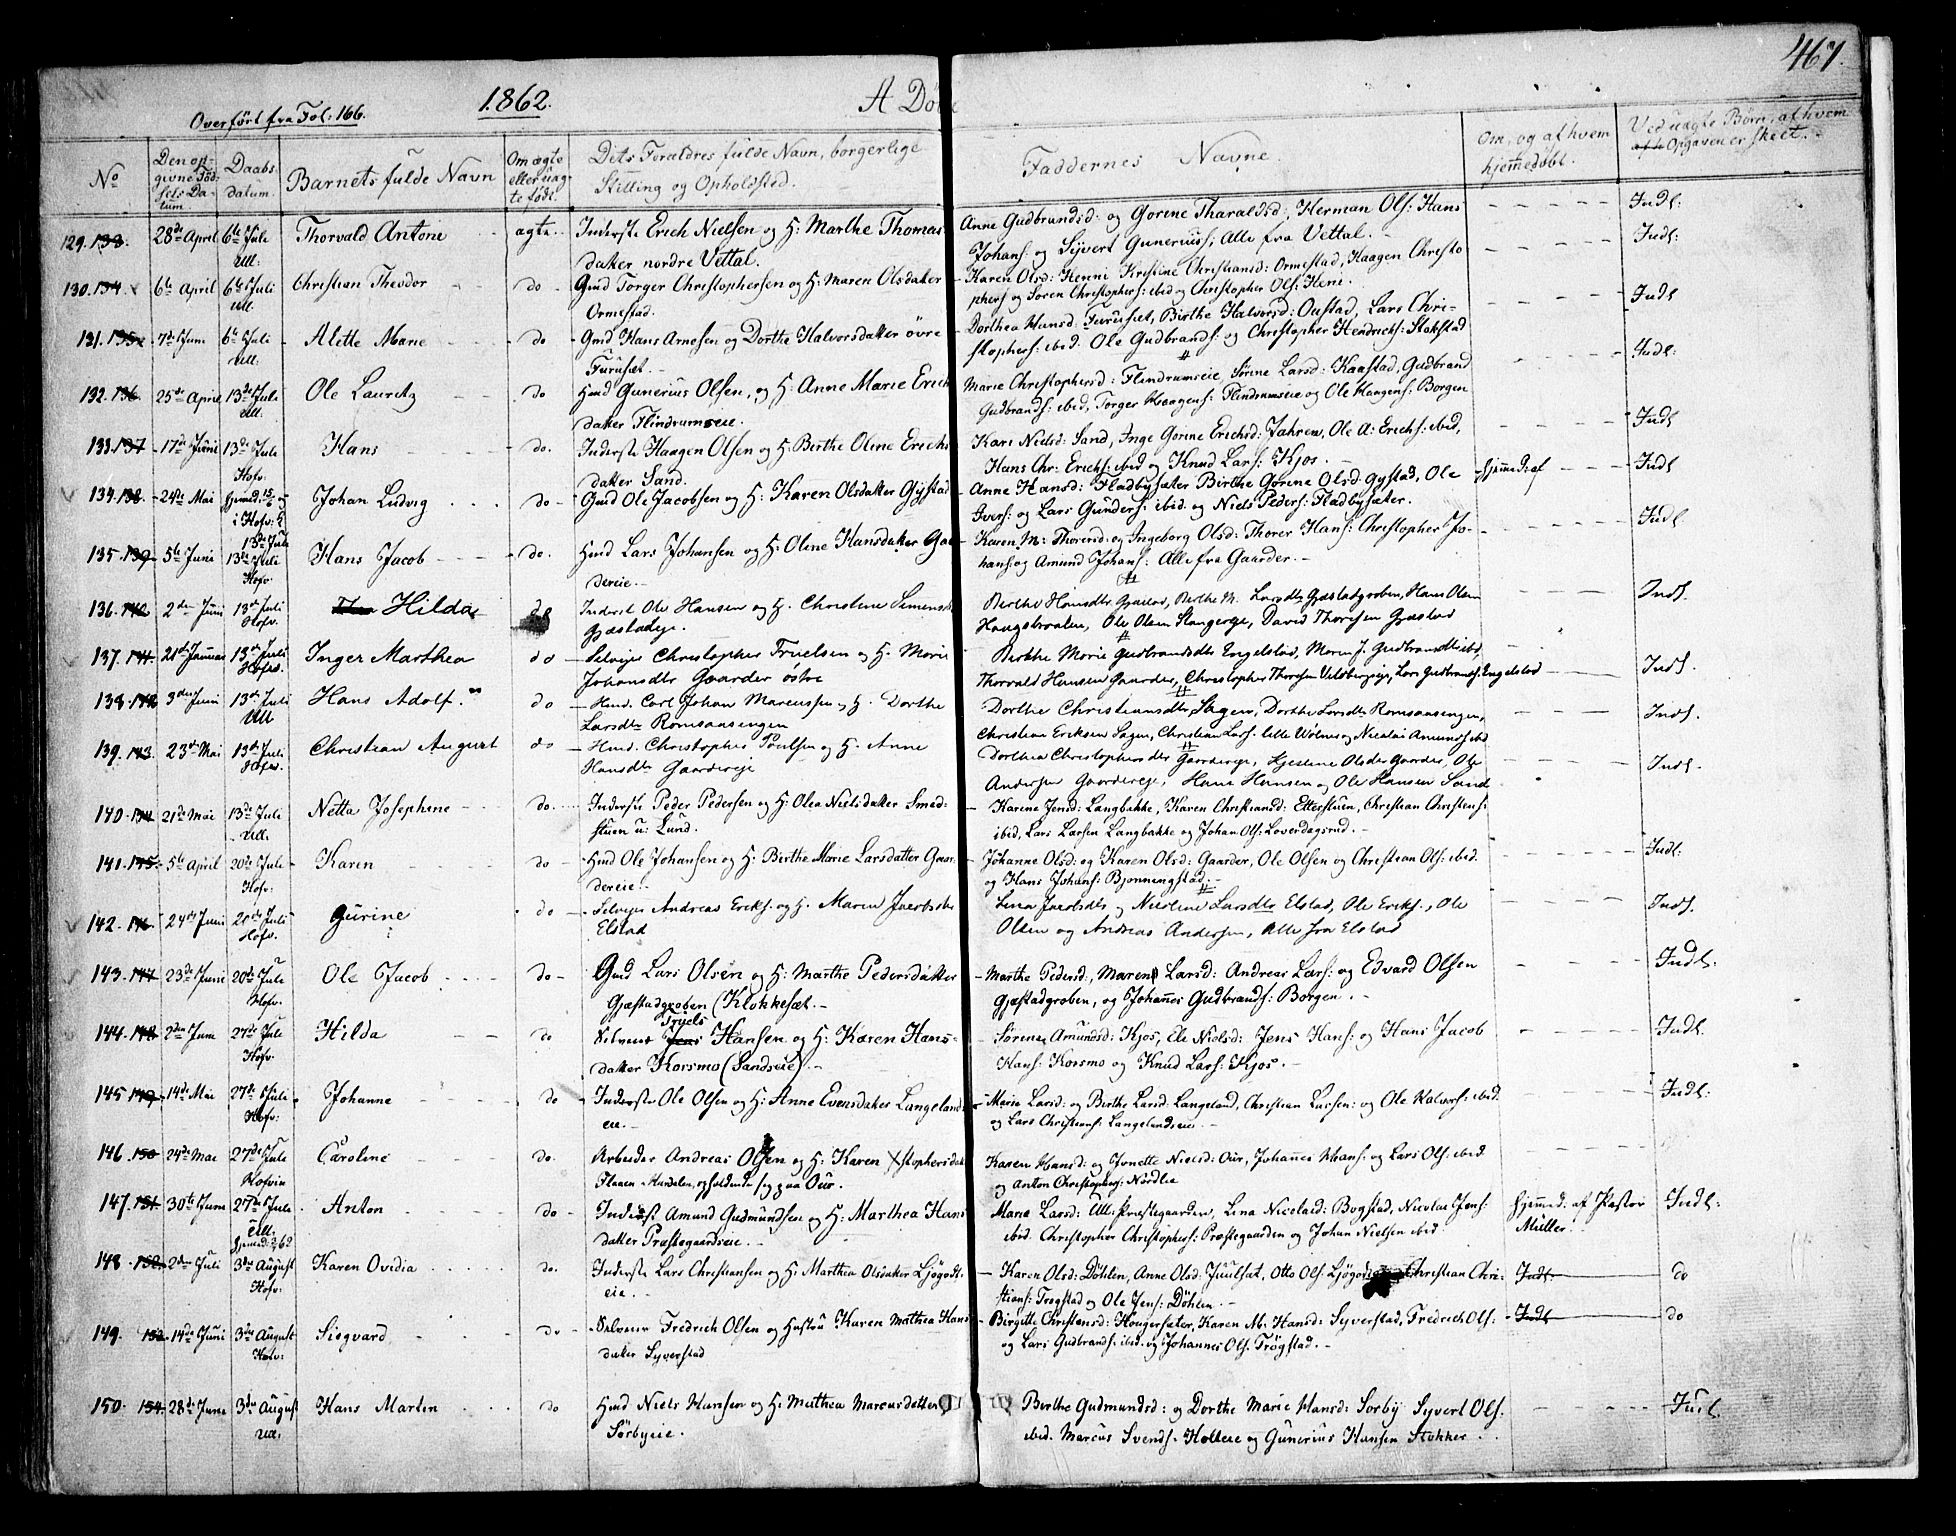 467.
1862.
A Døbte
Overført fra Fol: 166.
No
Den opgivne Fødsels Datum
Daabs datum
Barnets fulde Navn
Om ægte eller uægte født.
Dets Forældres fulde Navn, borgerlige Stilling og Opholdsted.
Faddernes Navne.
Om, og af hvem hjemmedøbt.
Ved uægte Børn, af hvem Opgaven er skeet.
129. 133. 28de April 6te Juli Ull. Thorvald Antoni ægte. Inderste Erich Nielsen og H: Marthe Thomas
datter nordre Vettal.
Anne Gudbrandsd: og Gorine Tharaldsd:, Herman Ols: Hans
Johans: og Syvert Guneriuss: Alle fra Vettal. Indl:
130. 134. 6te April 6te Juli Ull. Christian Theodor do Gmd Torger Christophersen og H: Maren Olsdatter
Ormestad.
Karen Olsd: Henni Kristine Christiansd: Ormestad, Haagen Christo
phers: og Soren Christophers: ibid og Christopher Ols: Heni. Indl:
131. 135. 7de Juni 6te Juli Ull. Alette Marie do Gmd Hans Arnesen og Dorthe Halvorsdatter øvre
Furuset.
Dorthea Hansd: Furuset, Birthe Halvorsd: Oustad, Lars Chri-
stophers: ibid. Ole Gudbrands: og Christopher Hendrichs: Stakstad Indl
132. 136. 25de April 13de Juli Ull. Ole Lauretz do Hmd Gunerius Olsen, og H: Anne Marie Erichs
datter Flindrumseie.
Marie Christophersd: Flindrumseie, Sørine Larsd: Kaastad, Gudbrand
Gudbrands: ibid, Torger Haagens: Flindrumseie og Ole Haagens: Borgen Indl:
133. 137 17de Juni 13de Juli Hofv: Hans do. Inderste Haagen Olsen og H: Birthe Oline Erichs
datter Sand.
Kari Nielsd: Sand, Inge Gorine Erichsd: Jahren, Ole A: Erichs: ibid,
Hans Chr: Erichs: ibid og Knud Lars: Kjos. Indl
134. 138. 24de Mai Hjmed: 15/6 og i Hofv: 13de Juli Johan Ludvig do Gmd Ole Jacobsen og H: Karen Olsdatter Gystad
Anne Hansd: Fladbysæter Birthe Gorine Olsd: Gystad, Ole
Ivers: og Lars Gunders: ibid. og Niels Peders: Fladbysæter. Indl
135. 139. 5te Juni 13de Juli Hofv: Hans Jacob do. Hmd Lars Johansen og H: Oline Hansdatter Gaar
dereie.
Karen M: Thorersd: og Ingeborg Olsd: Thorer Hans: Christopher Jo-
hans: og Amund Johans: Alle fra Gaarder. Indl
136. 140 2den Juni 13de Juli Hofv. Hilda do Inderst Ole Hansen og H. Christine Simensdt
Gjæstadeje.
Berthe Hansdtr Gjæstad, Berthe M. Larsdtr Gjæstadgroben, Hans Olsen
Haugsbraaten, Ole Olsen Stangerge, David Thorsen Gjæstad Indl.
137. 141. 21de Januar 13de Juli Hofv. Inger Marthea do Selvejer Christopher Truelsen og H. Marie
Johansdtr Gaarder østre
Berthe Marie Gudbrandsdtr Engelstad, Maren J. Gudbrandsdtr ibid,
Thorvald Hansen Gaarder, Christopher Thorsen Veldbergseje, Lars Gudbrands: Engelstad Indl.
138. 142 3die Juni 13de Juli Ull Hans Adolf. do Hmd. Carl Johan Marcussen og H. Dorthe
Larsdtr Romsaasengen
Dorthe Christiansdtr Sagen, Dorthe Larsdtr Romsaasengen,
Christian Eriksen Sagen, Christian Lars: lille Wølmer og Nicolai Amunds: ibid Indl.
139. 143 23de Mai 13de Juli Hofv. Christian August do Hmd. Christopher Poulsen og H. Anne
Hansdtr Gaardereje
Dorthea Christophersdtr Gaardereje, Kjestine Olsdtr Gaarder, Ole
Andersen Gaardereje, Hans Hansen og Ole Hansen Sand Indl.
140. 144 21de Mai 13de Juli Ull. Netta Josephine do. Inderste Peder Pedersen og H: Olea Nielsdatter Smed-
stuen u: Lund.
Karina Jensd: Langbakke, Karen Christiansd: Etterstuen, Christian Christens:
ibid, Lars Larsen Langbakke og Johan Ols: Løverdagsrud.
141. 145. 5te April 20de Juli Hofv: Karen do Hmd Ole Johansen og H: Birthe Marie Larsdatter Gaar
dereie.
Johanne Olsd: og Karen Olsd: Gaarder, Ole Olsen og Christian Ols: ibid.
og Hans Johans: Bjonningstad. Indl:
142. 146. 24de Juni 20de Juli Hofv. Gurine do Selvejer Andreas Eriks. og H. Maren Jacobsdtr
Elstad
Lina Jacobsdtr og Nicoline Larsdtr Elstad, Ole Eriks., Ole
Olsen og Andreas Andersen, Alle fra Elstad Indl.
143. 147 23de Juni 20de Juli Hofv. Ole Jacob do Gmd Lars Olsen og H: Marthe Pedersdatter
Gjæstadgroben (Klokkeset.
Marthe Pedersd:, Maren Larsd: Andreas Lars: og Edvard Olsen
Gjæstadgroben, og Johannes Gudbrands: Borgen. Indl:
144. 148 2den Juni 27de Juli Hofv: Hilda do Selveier Jens Truels Hansen og H: Karen Hans-
datter Korsmo (Sandseie).
Sørine Amundsd: Kjos, Ele Nielsd: Jens Hans: og Hans Jacob
Hans: Korsmo og Knud Lars: Kjos. Indl
145 149. 14de Mai 27de Juli Hofv: Johanne do Inderste Ole Olsen og H: Anne Evensdatter Langelands
eie.
Marie Larsd: og Birthe Larsd: Langeland, Christian Larsen: og Ole Halvors: ibid.
og Lars Christians: Langelandseie. Indl:
146. 150 24de Mai 27de Juli Hofvin Caroline do. Arbeider Andreas Olsen og H: Karen Xstophersdat
Flaaen i Hurdalen, opholdende sig paa Øur.
Karen Hansd: og Jonette Nielsd: Øur, Johannes Hans: og Lars Ols: ibid
og Anton Christophers: Nordlie
147. 151. 30te Juni 27de Juli Ull. Hjemed: 2/7 62 Anton do Inderst Amund Gudmundsen og H: Marthea Hans
datter Præstegaardseie.
Maria Larsd: Ull: Præstegaarden, Lina Nicolaid: Bogstad, Nicolai Jens:
ibid. Christopher Christophers: Præstegaarden og Johan Nielsen ibid Hjemmed: af Pastor
Müller. Indl:
148. 152. 2den Juli 3die August Hofv: Karen Ovidia do. Inderste Lars Christiansen og H: Marthea Olsdatter Ljøgodt-
eie.
Karen Olsd: Döhlen, Anne Olsd: Juulsæt, Otto Ols: Ljøgodt Christian Chri-
stians: Trøgstad og Ole Jens: Döhlen. Indl. do
149. 153. 14de Juni 3die August Hofv: Sigvard do Selveier Fredrich Olsen og Hustru Karen Mathea Hans
datter Syverstad
Birgitte Christensd: Hougersæter, Karen M: Hansd: Syverstad, Fredrich Ols:
og Lars Gudbrands: ibid. og Johannes Ols. Trögstad. Indl do
150. 154. 28de Juni 3die August Ull. Hans Martin do Hmd Niels Hansen og H: Mathea Marcusdatter
Sörbyeie.
Birthe Gudmundsd: og Dorthe Marie Hansd: Sorby Syvert Ols:
ibid. Marcus Svends: Holteie og Gunerius Hansen Stokker. Indl.